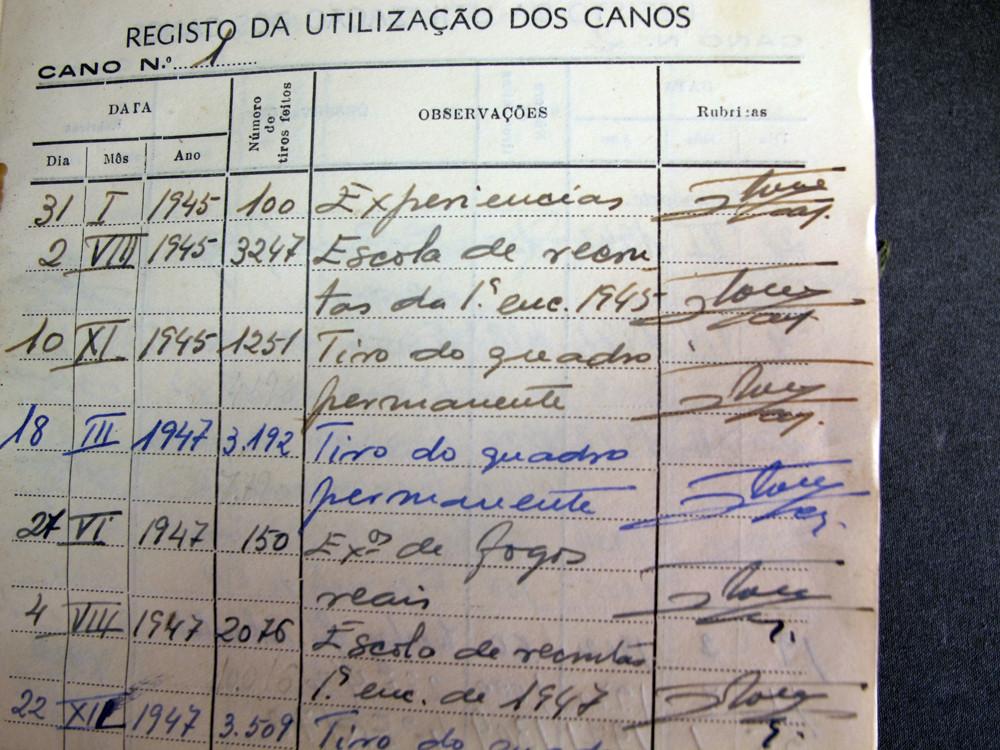 REGISTO DA UTILIZAÇÃO DOS CANOS
CANO N.º 1
DATA
Número do tiros feitos
OBSERVAÇÕES
Rubricas
Dia Mês Ano
31 I 1945 100 Experiencias
2 VIII 1945 3247 Escola de recru
tas da 1.ª enc. 1945
10 XI 1945 1251 Tiro do quadro
permanente
18 III 1947 3.192 Tiro do quadro
permanente
27 VI 1947 150 Ex.os de fogos
reais
4 VIII 1947 2076 Escola de recrutas
1.ª enc. de 1947
22 XII 1947 3.509 Tiro do quadro